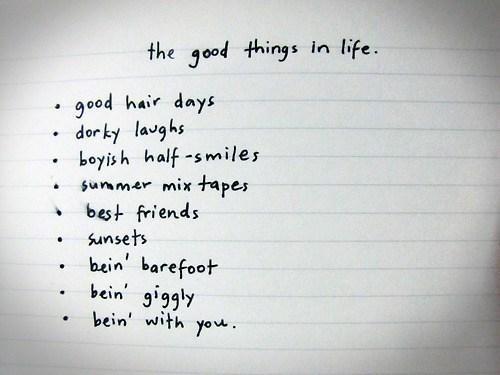 the good things in life.
• good hair days
• dorky laughs
• boyish half-smiles
• summer mix tapes
• best friends
• sunsets
• bein' barefoot
• bein' giggly
• bein' with you.